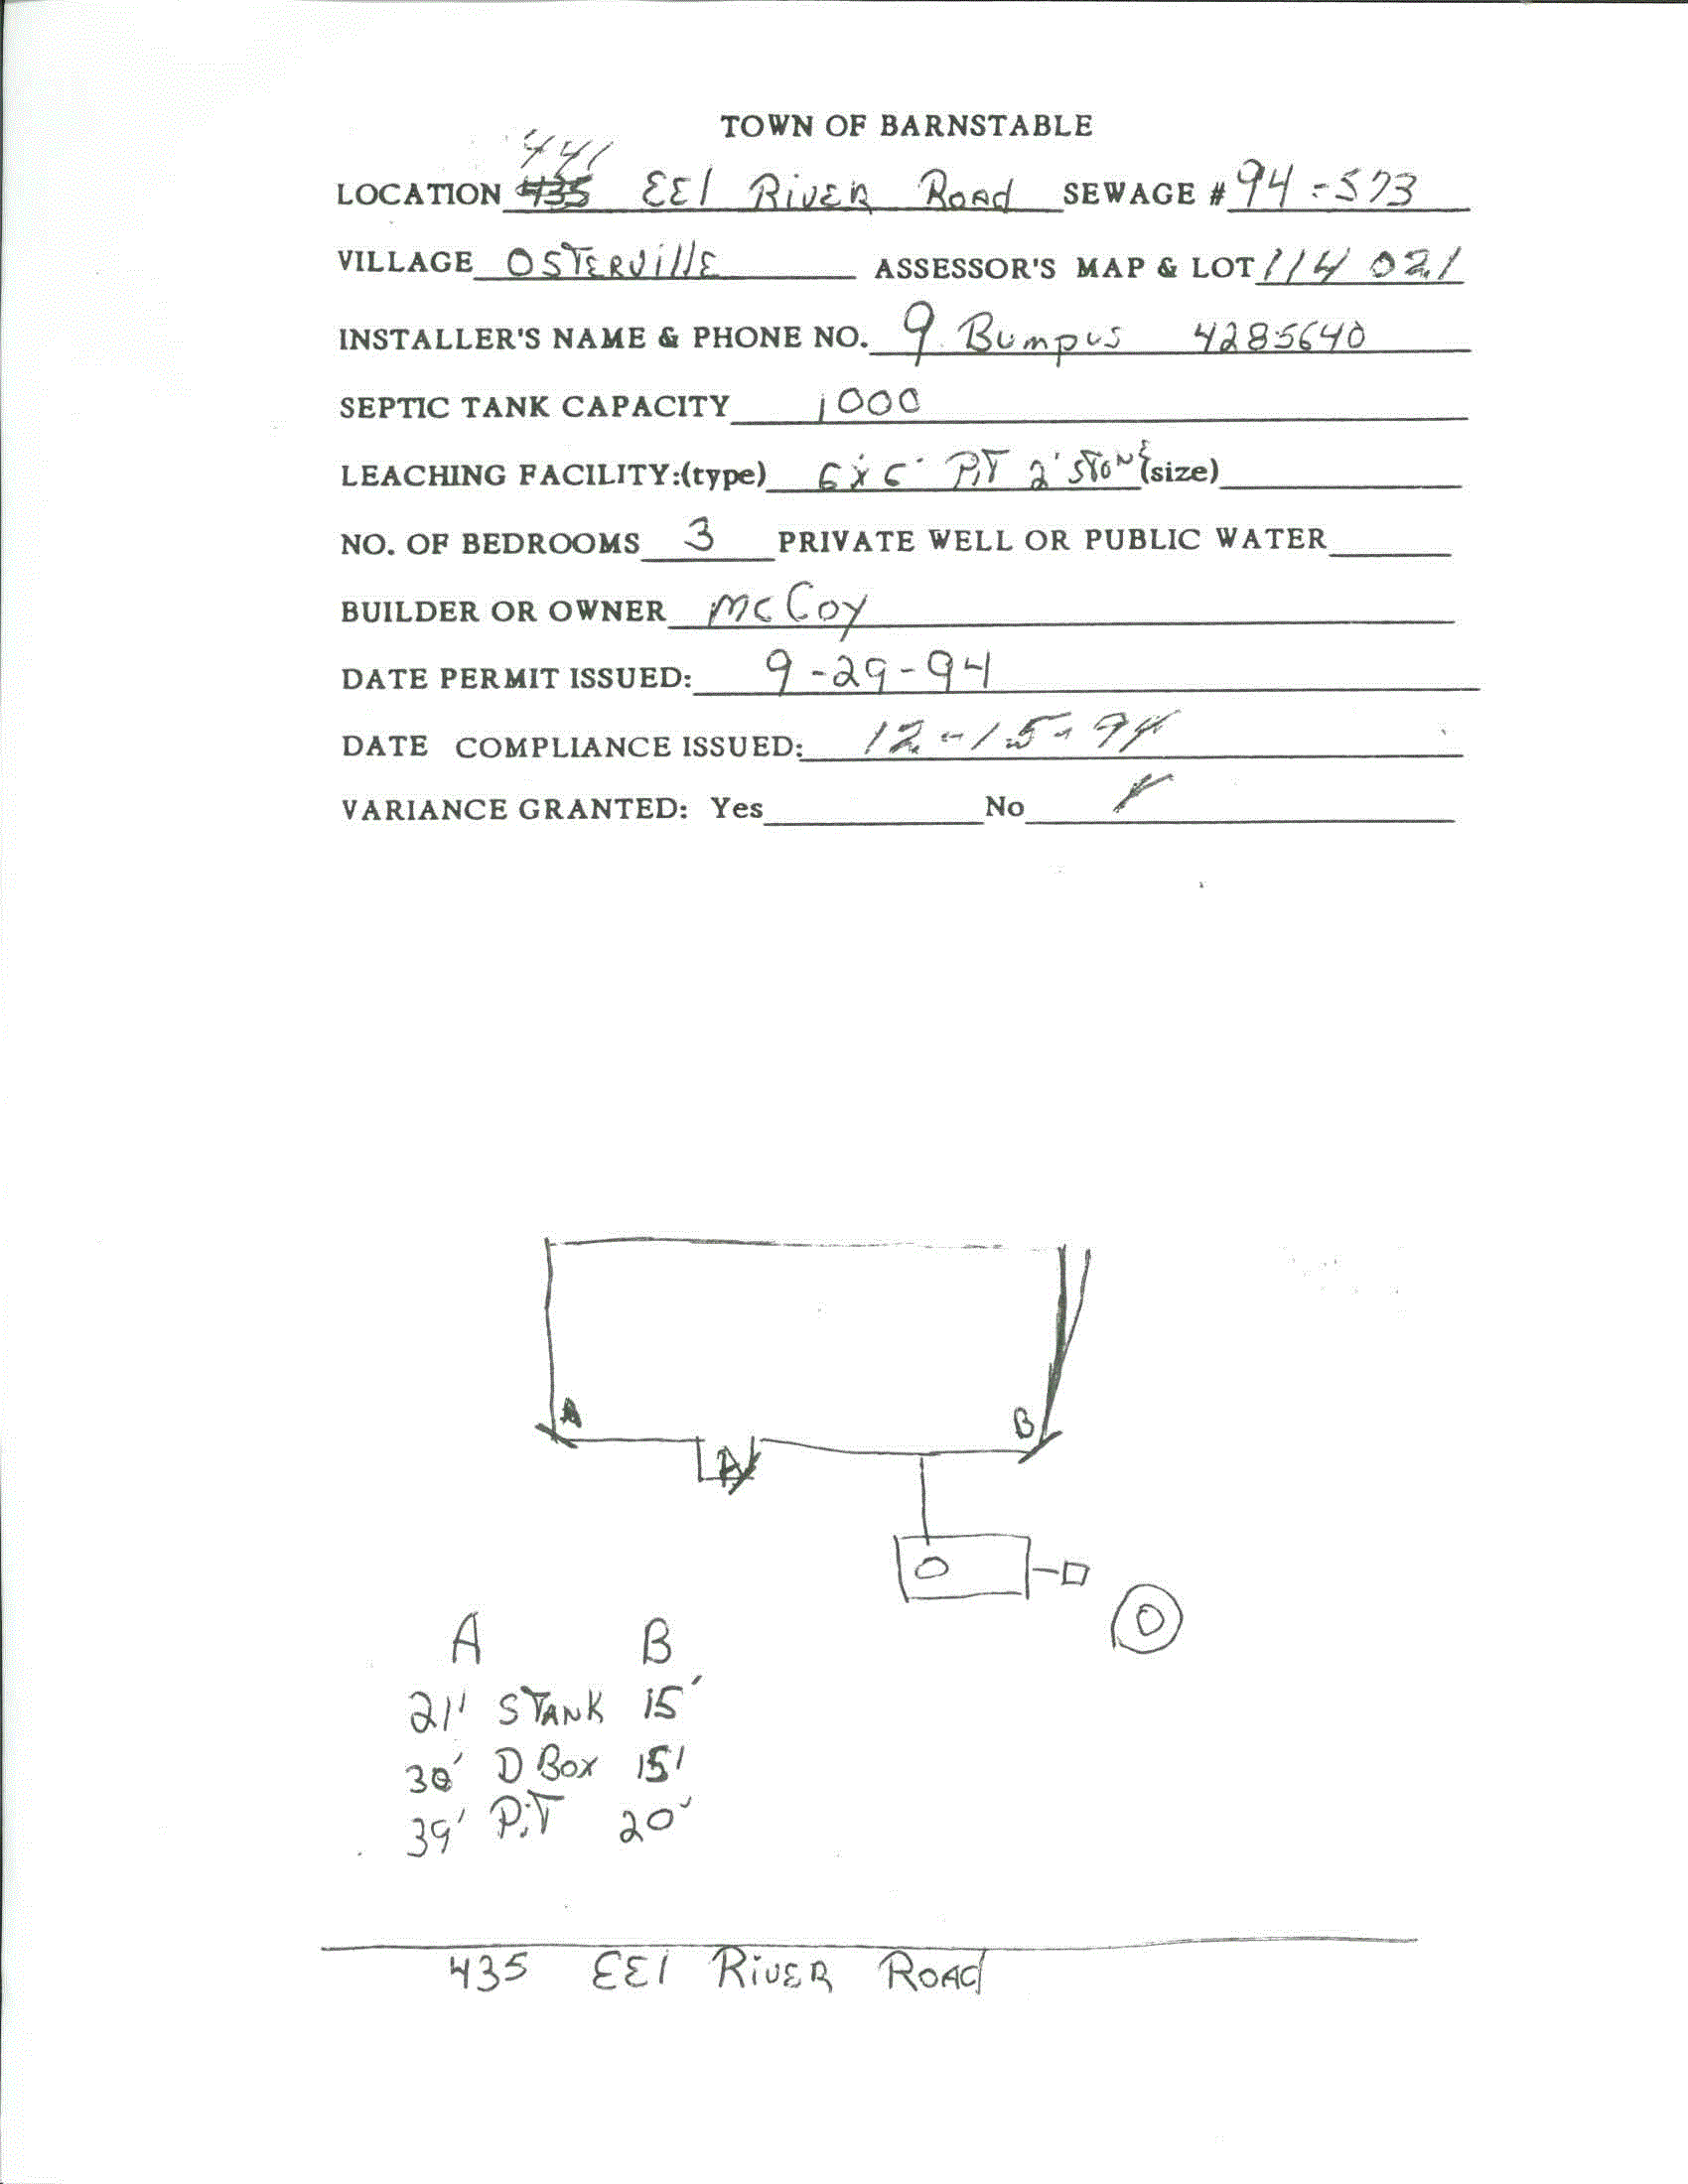 TOWN OF BARNSTABLE
441
LOCATION 435 EEl RivER Road SEWAGE # 94-573
VILLAGE OSTERVillE ASSESSOR'S MAP & LOT 114 021
INSTALLER'S NAME & PHONE NO. Bumpus 4285640
SEPTIC TANK CAPACITY 1000
LEACHING FACILITY:(type) 6'x6' PiT 2' STONE (size)
NO. OF BEDROOMS 3 PRIVATE WELL OR PUBLIC WATER
BUILDER OR OWNER McCoy
DATE PERMIT ISSUED: 9-29-94
DATE COMPLIANCE ISSUED: 12-15-94
VARIANCE GRANTED: Yes No
A B
A
A B
21' STANK 15'
30' D Box 15'
39' PiT 20'
435 EEl RivER ROAd